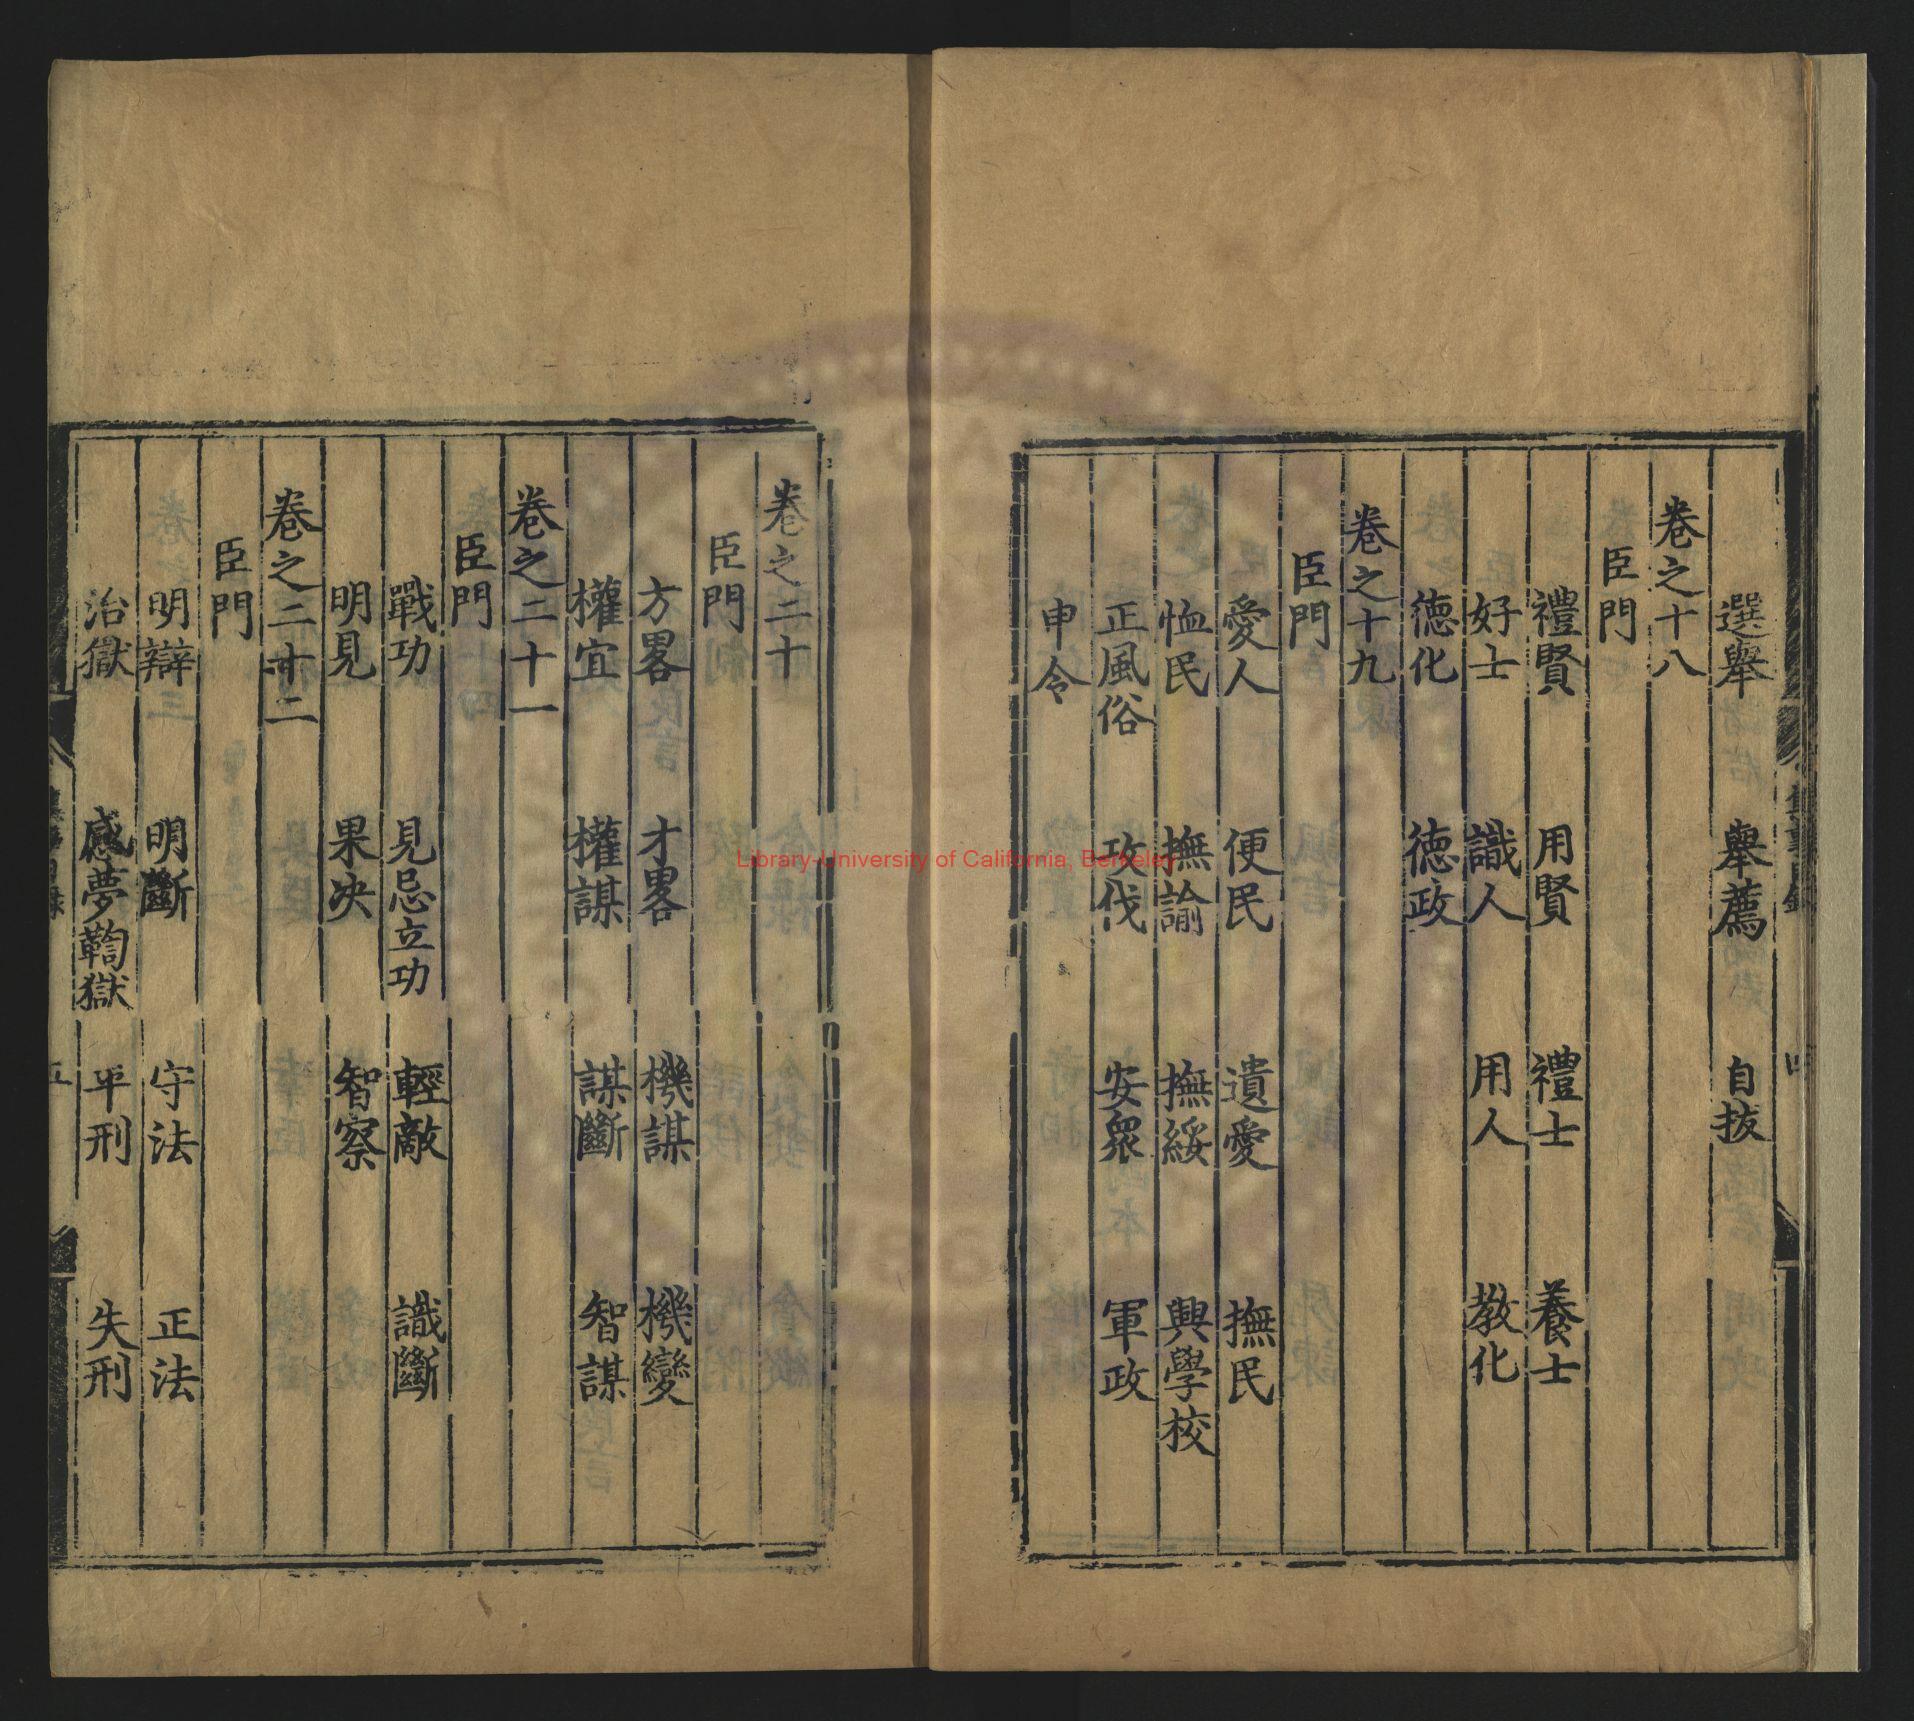 選舉 舉薦 自拔
卷之十八
臣門
禮賢 用賢 禮士 養士
好士 識人 用人 教化
德化 德政
卷之十九
臣門
愛人 便民 遺愛 撫民
恤民 撫諭 撫綏 興學校
正風俗 攻伐 安眾 軍政
申令
卷之二十
臣門
方畧 才畧 機謀 機變
權宜 權謀 謀斷 智謀
卷之二十一
臣門
戰功 見忌立功 輕敵 識斷
明見 果决 智察
卷之二十二
臣門
明辯 明斷 守法 正法
治獄 感夢鞫獄 平刑 失刑
五
Library-University of California, Berkeley